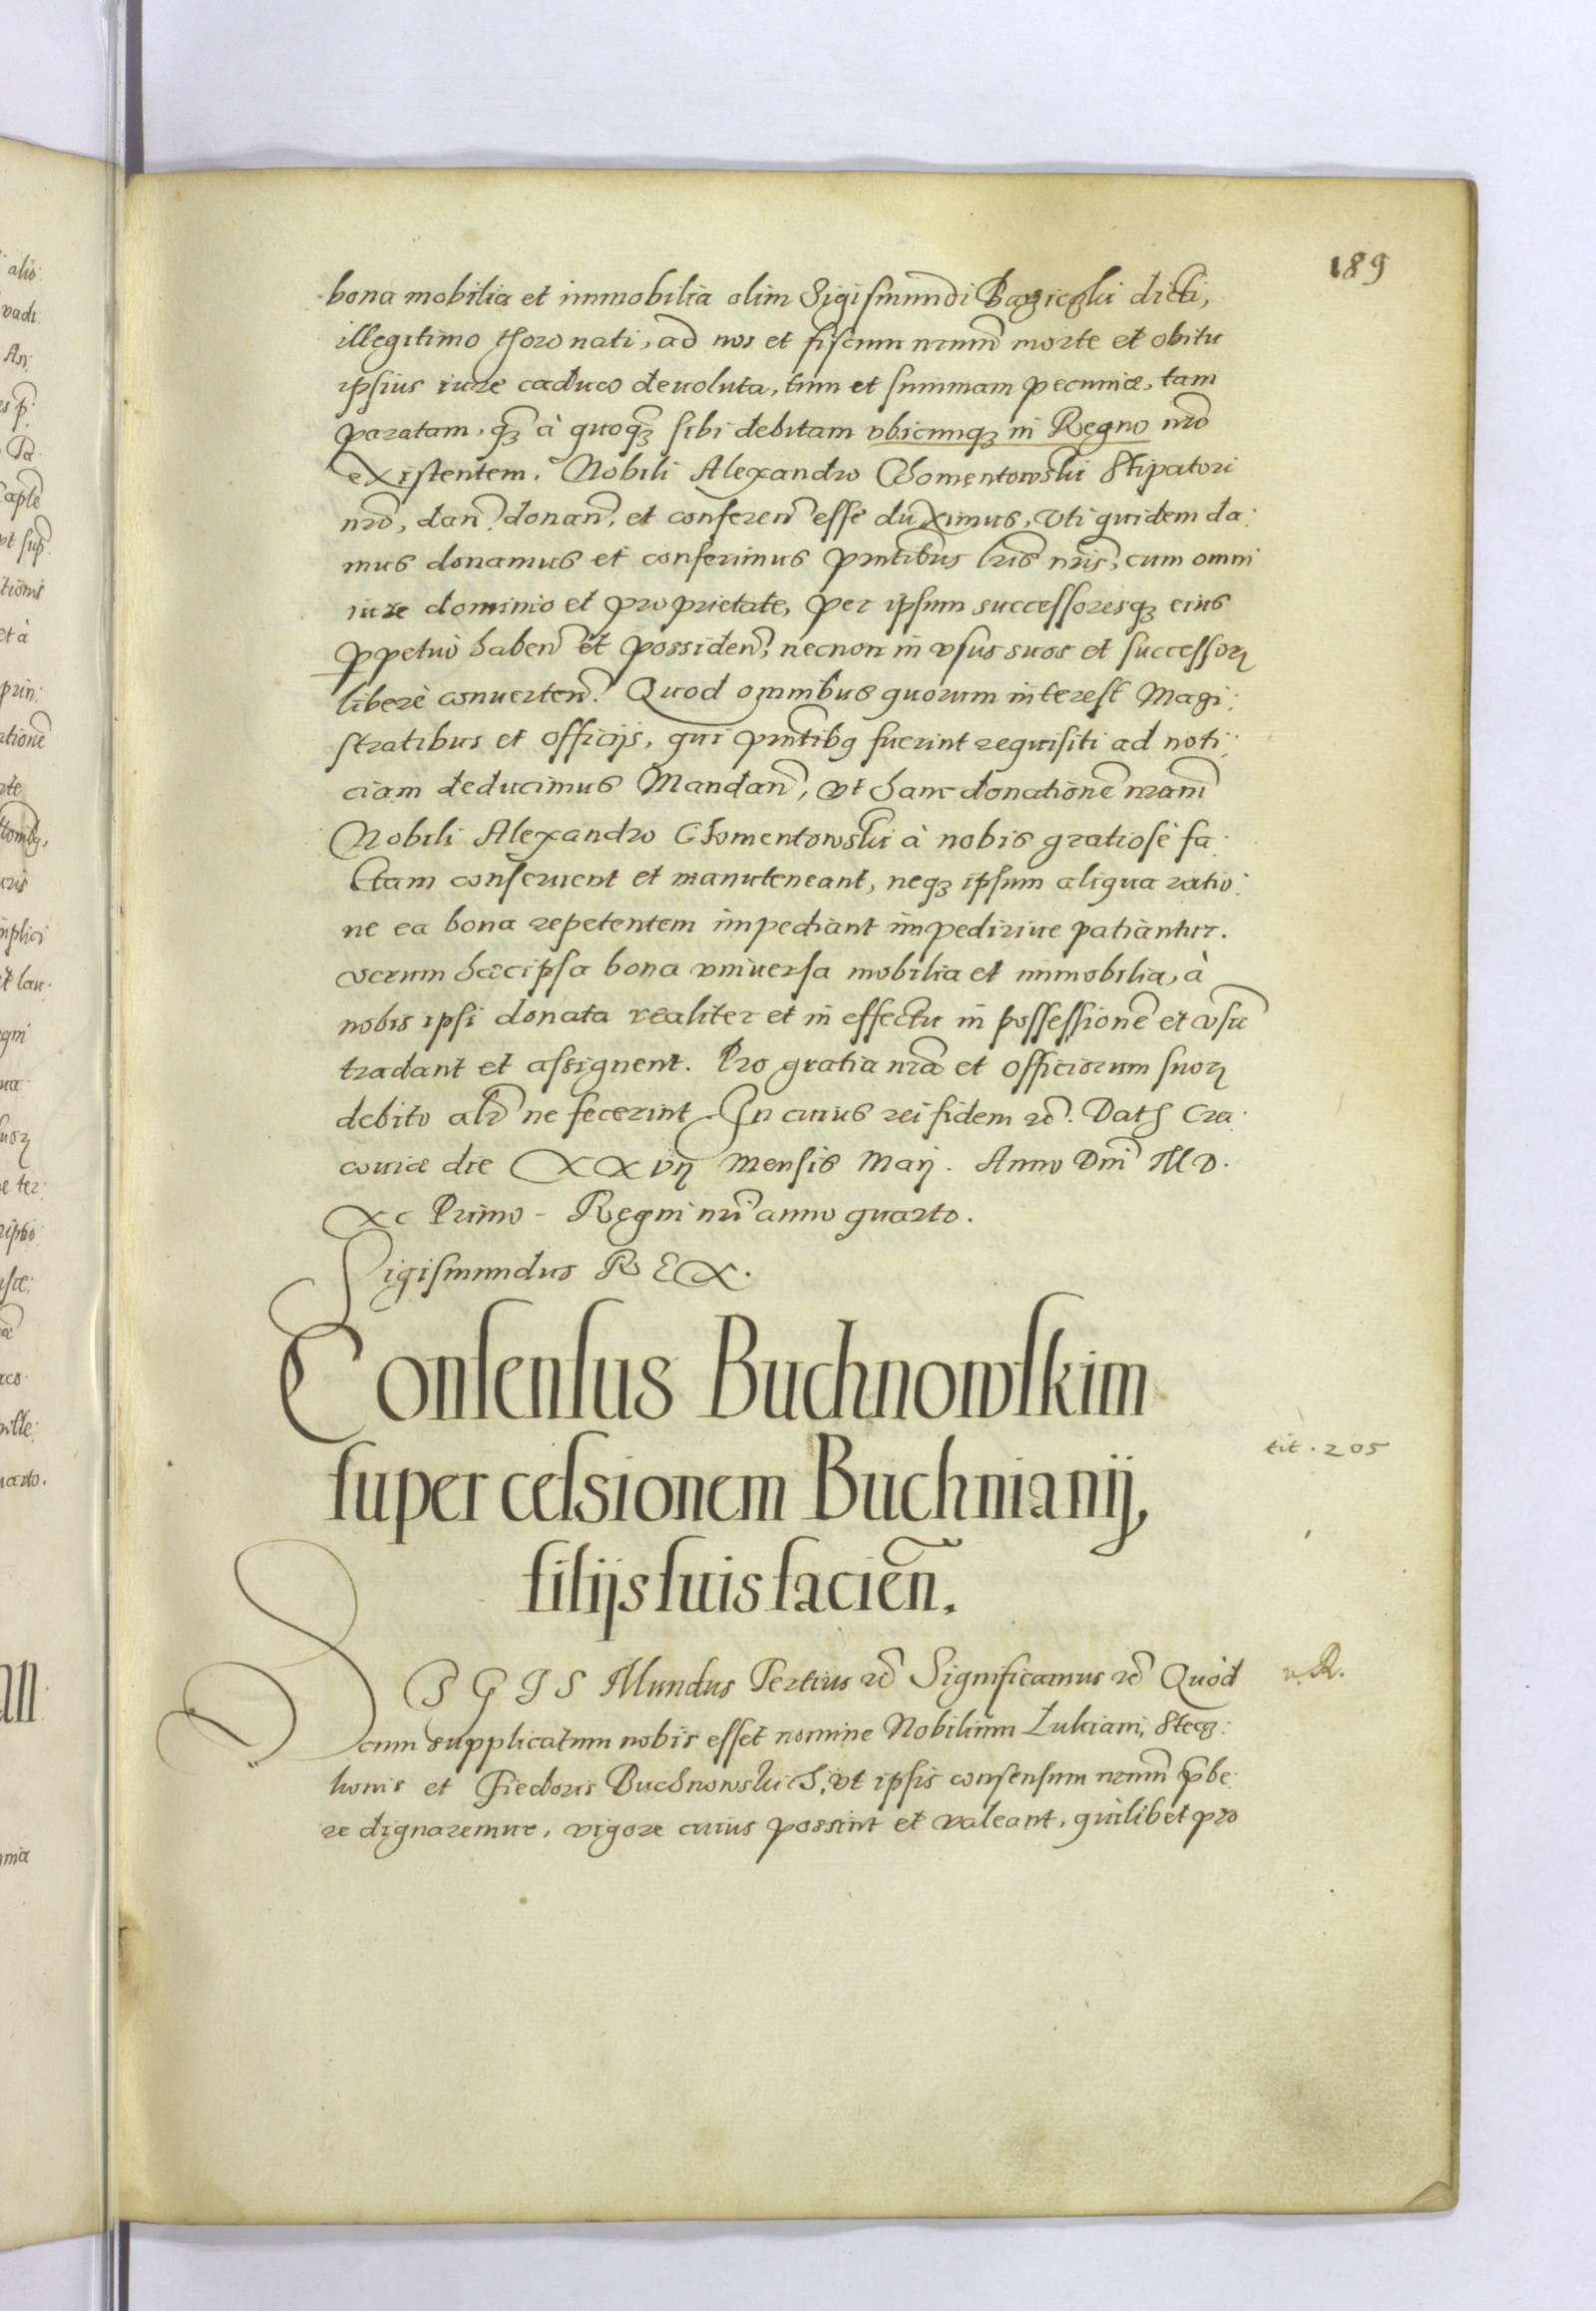 189
bona mobilia et immobilia olim Sigismundi dicti,
illegitimo thoro nati, ad nos et fiscum nrum̃ morte et obitu
ipsius iure caduco deuoluta, tum et summam pecuniæ, tam
paratam, qȝ̃ à quoqȝ̃ sibi debitam vbicunqȝ in Regno nr̃o
existentem. Nobili Alexandro Chomentowski Stipatori
nr̃o, dañ. donañ. et confereñ esse duximus, Vti quidem da:
mus donamus et conferimus pñtibus lr̃is nr̃is, cum omni
iure dominio et proprietate, per ipsum successoresqȝ eius
ꝑpetuò habeñ et possideñ, necnon in vsus suos et successorꝝ
liberè conuerteñ. Quod omnibus quorum interest Magi:
stratibus et officijs, qui pñtibꝰ fuerint requisiti ad noti:
ciam deducimus Mandañ, vt hanc donationẽ nram̃
Nobili Alexandro Chomentowski à nobis gratiosè fa:
ctam conseruent et manuteneant, neqȝ ipsum aliqua ratio:
ne ea bona repetentem impediant impediriue patiantur.
verum hæc ipsa bona vniuersa mobilia et immobilia, à
nobis ipsi donata realiter et in effectu in possessionẽ et vsũ
tradant et assignent. Pro gratia nr̃a et officiorum suorꝝ
debito alr̃ ne fecerint. In cuius rei fidem rc̃. Dath Cra:
couiæ die XXVII Mensis Maij. Anno Dñi MD.
XC Primo - Regni nr̃i anno quarto.
Sigismundus REX.
Consensus Buchnowskim
super cessionem Buchnianij,
filijs suis facieñ.
SIGISMundus Tertius rc̃ Significamus rc̃ Quòd
cum supplicatum nobis esset nomine Nobilium Lukiani, Stecz:
konis et Fiedoris Buchnowski h, vt ipsis consensum nrum̃ p̃be:
re dignaremur, vigore cuius possint et valeant, quilibet pro
tit. 205